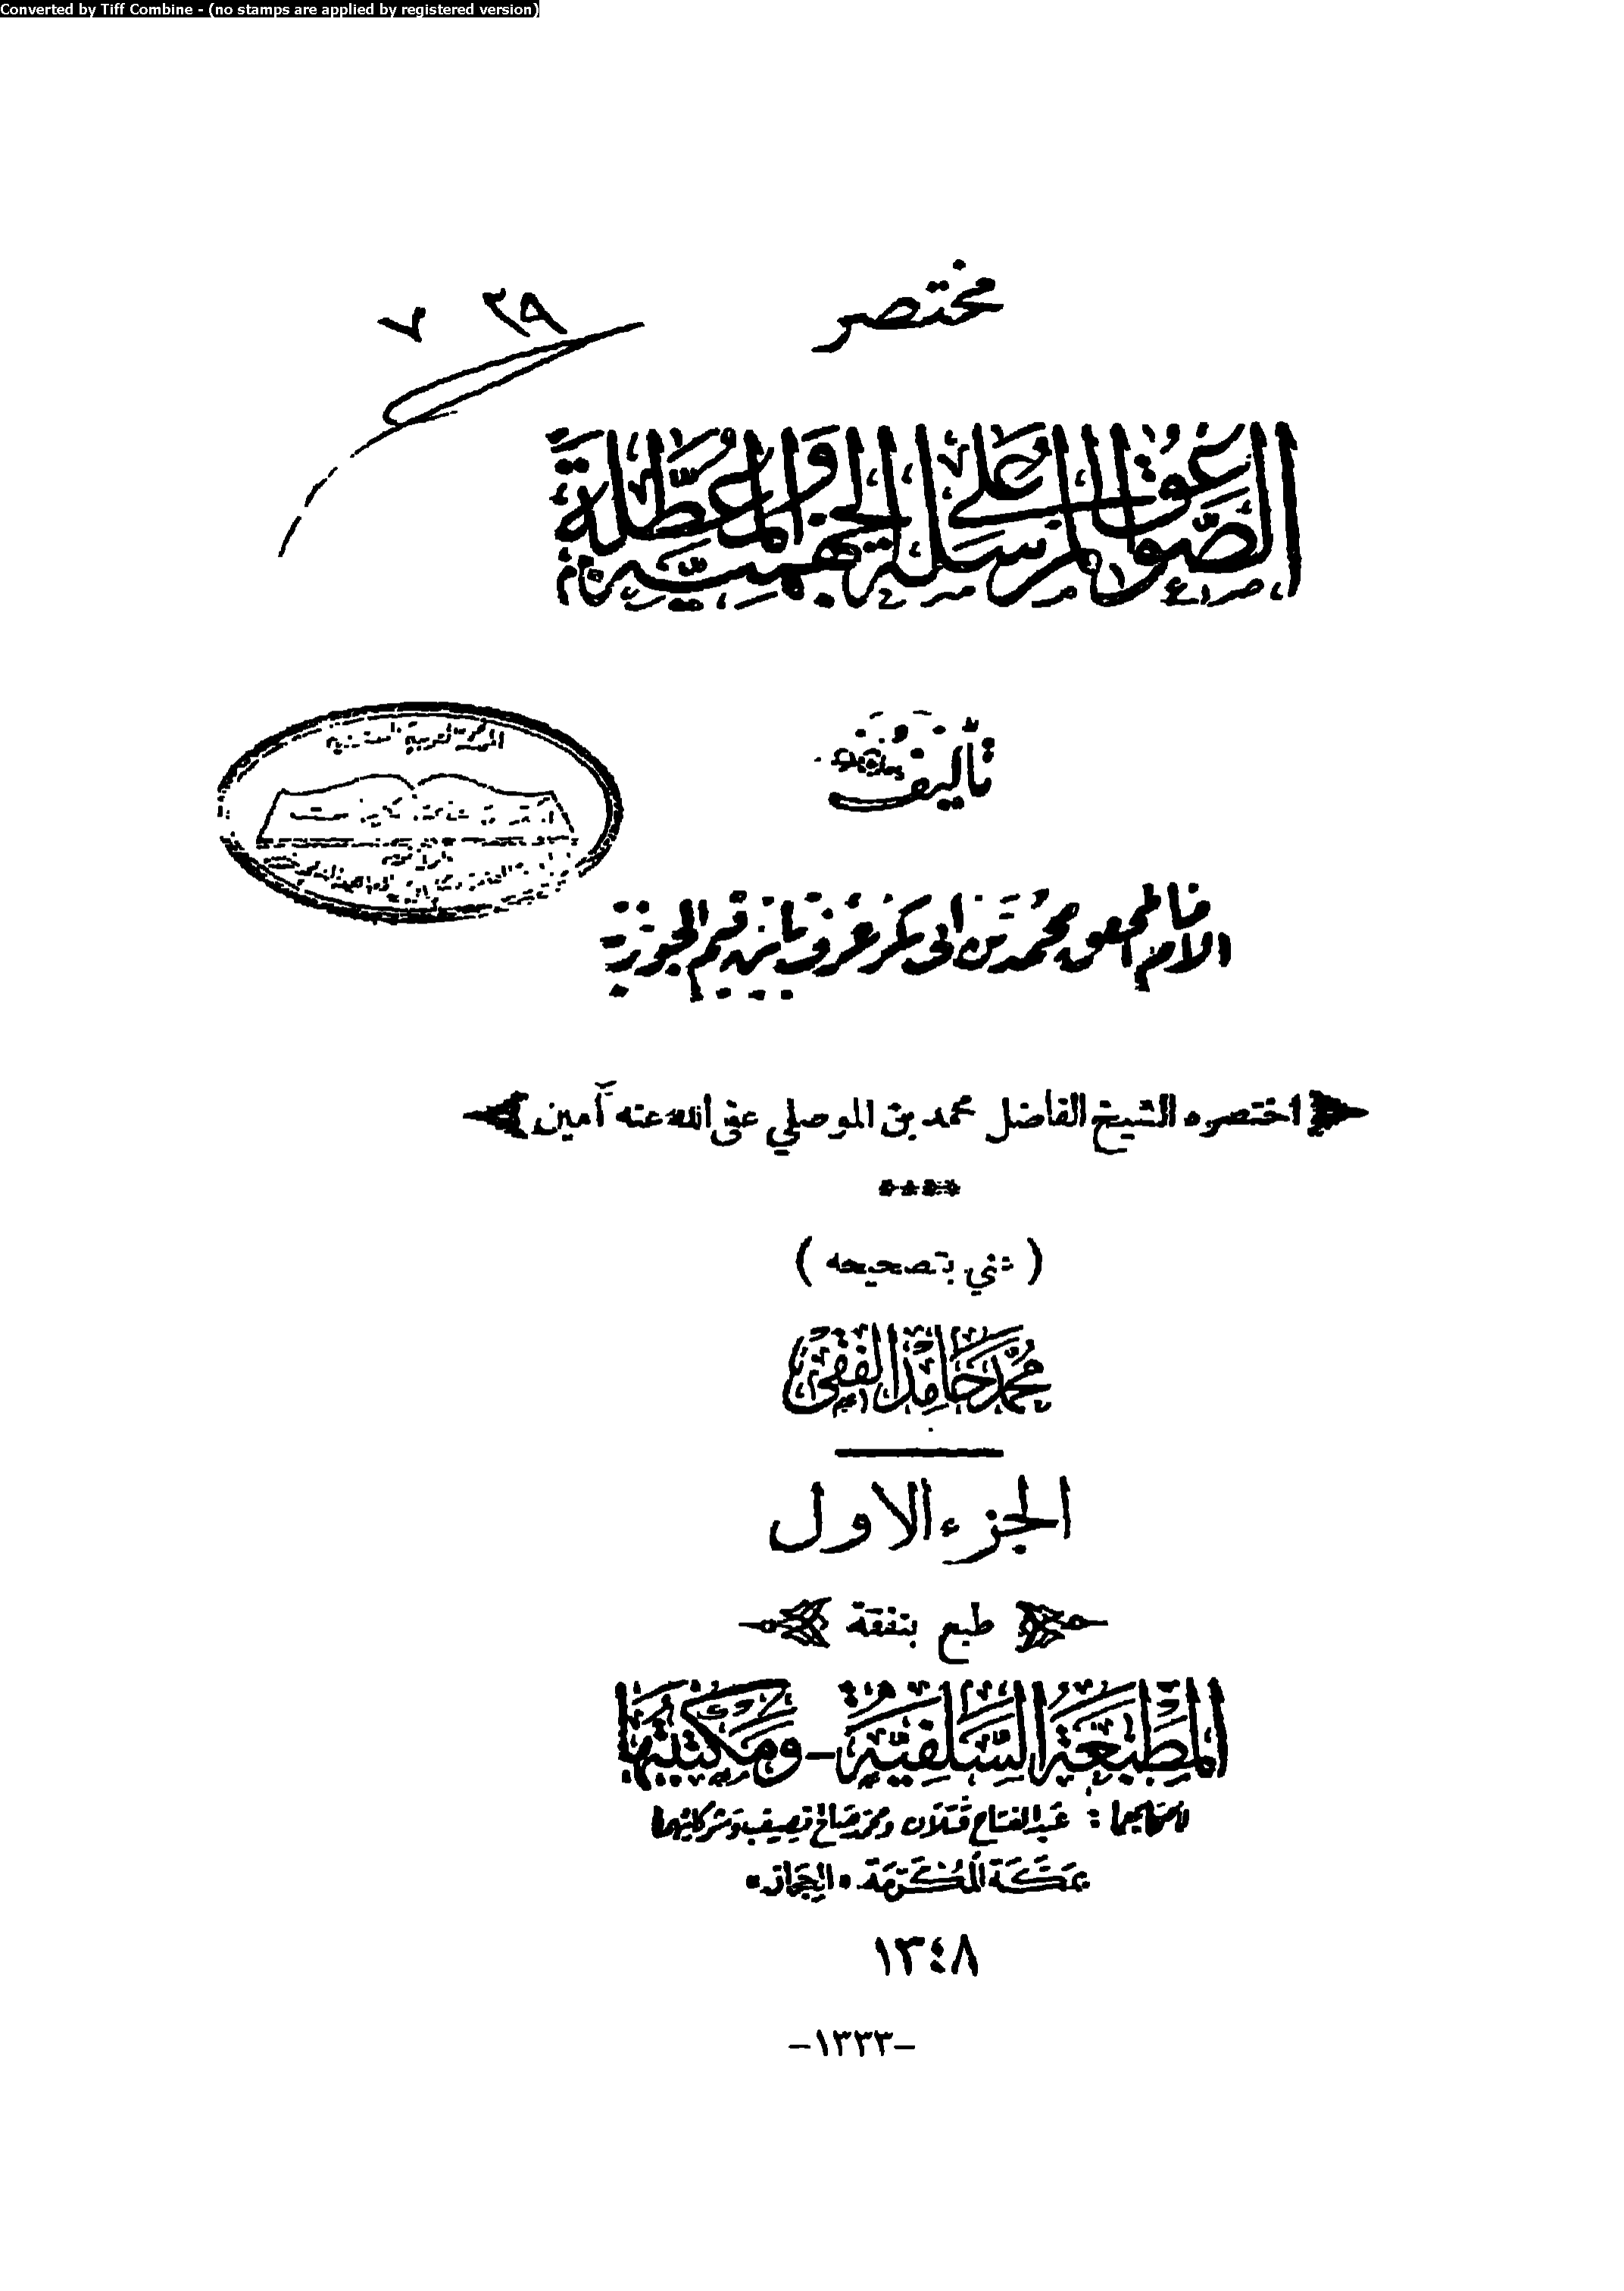 Converted by Tiff Combine - (no stamps are applied by registered version)
مختصر
٣٩ ٧
الصَّوَاعِقُ المُرْسَلَة عَلَى الجَهْمِيَّة وَالمُعَطِّلَة
تأليف
الامام المحقق محمد بن ابى بكر المعروف بابن قيم الجوزية
اختصره الشيخ الفاضل محمد بن الموصلي عفى الله عنه آمين
****
( عني بتصحيحه )
محمد حامد الفقى
الجزء الاول
طبع بنفقة
المطبعة السلفية - ومكتبتها
لصاحبيها : عبد الفتاح قتلان ومحمد صالح نصيف وشركائهما
بمكة المكرمة «الحجاز»
١٣٤٨
-١٣٣٣-